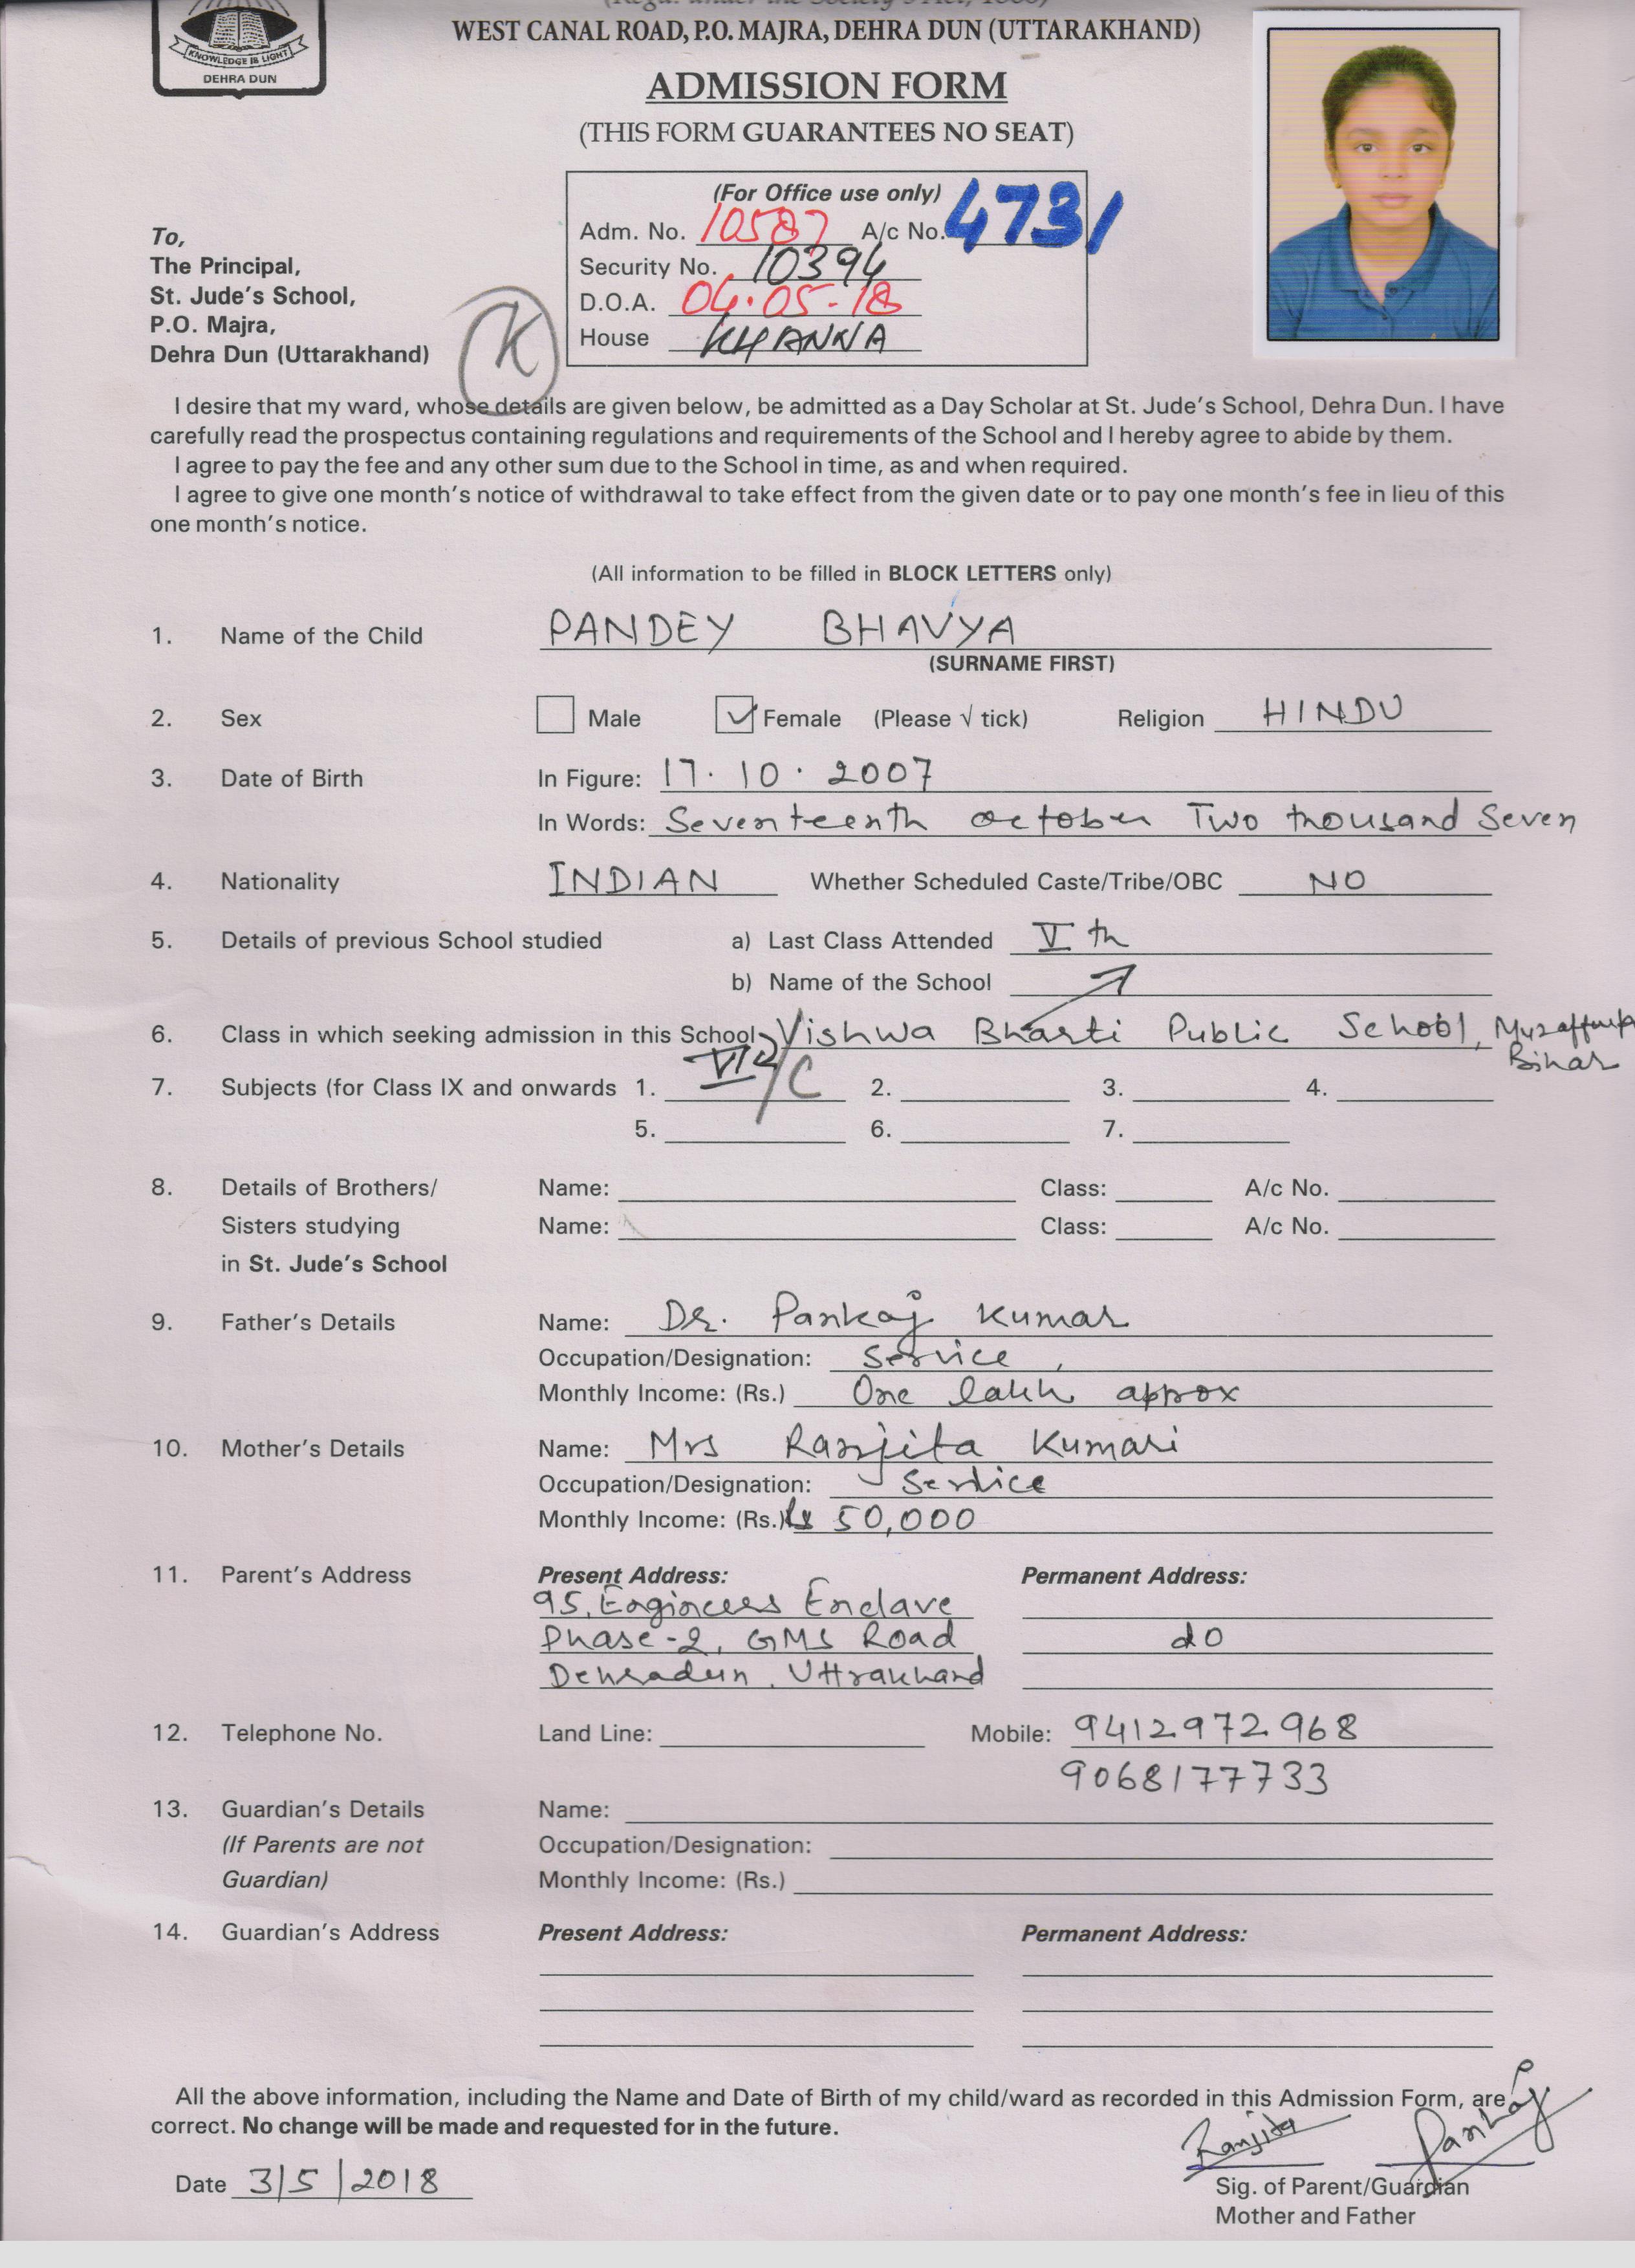 KNOWLEDGE IS LIGHT
DEHRA DUN
WEST CANAL ROAD, P.O. MAJRA, DEHRA DUN (UTTARAKHAND)
ADMISSION FORM
(THIS FORM GUARANTEES NO SEAT)
(For Office use only)
Adm. No. 10587 A/c No. 4731
Security No. 10394
D.O.A. 04.05-18
House KHANNA
To,
The Principal,
St. Jude's School,
P.O. Majra,
Dehra Dun (Uttarakhand)
K
I desire that my ward, whose details are given below, be admitted as a Day Scholar at St. Jude's School, Dehra Dun. I have
carefully read the prospectus containing regulations and requirements of the School and I hereby agree to abide by them.
I agree to pay the fee and any other sum due to the School in time, as and when required.
I agree to give one month's notice of withdrawal to take effect from the given date or to pay one month's fee in lieu of this
one month's notice.
(All information to be filled in BLOCK LETTERS only)
1. Name of the Child PANDEY BHAVYA
(SURNAME FIRST)
2. Sex Male ✓ Female (Please √ tick) Religion HINDU
3. Date of Birth In Figure: 17.10.2007
In Words: Seventeenth october Two thousand Seven
4. Nationality INDIAN Whether Scheduled Caste/Tribe/OBC NO
5. Details of previous School studied a) Last Class Attended Vth
b) Name of the School
6. Class in which seeking admission in this School Vishwa Bharti Public School,
Bihar
VI/C
7. Subjects (for Class IX and onwards 1. 2. 3. 4.
5. 6. 7.
8. Details of Brothers/ Name: Class: A/c No.
Sisters studying Name: Class: A/c No.
in St. Jude's School
9. Father's Details Name: Dr. Pankaj Kumar
Occupation/Designation: Service,
Monthly Income: (Rs.) One lakh approx
10. Mother's Details Name: Mrs Ranjita Kumari
Occupation/Designation: Service
Monthly Income: (Rs.) Rs 50,000
11. Parent's Address Present Address: Permanent Address:
95, Engineers Enclave
Phase-2, GMS Road do
Dehradun, Uttrakhand
12. Telephone No. Land Line: Mobile: 9412972968
9068177733
13. Guardian's Details Name:
(If Parents are not Occupation/Designation:
Guardian) Monthly Income: (Rs.)
14. Guardian's Address Present Address: Permanent Address:
All the above information, including the Name and Date of Birth of my child/ward as recorded in this Admission Form, are
correct. No change will be made and requested for in the future.
Ranjita Pankaj
Date 3/5/2018
Sig. of Parent/Guardian
Mother and Father